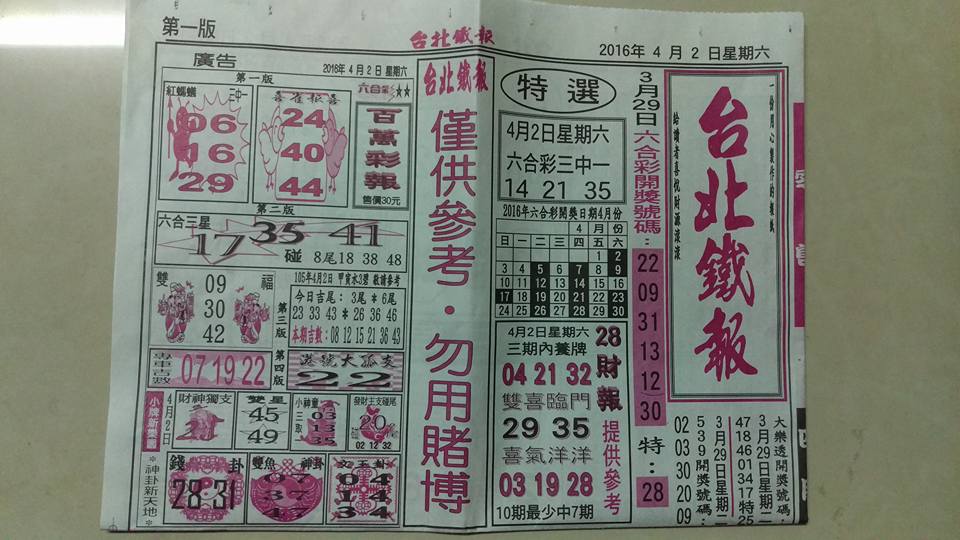 第一版
台北鐵報
2016年 4 月 2 日星期六
廣告
2016年 4月 2日 星期六
第一版
紅螞蟻
三中一
06
16
29
24
40
44
六合彩
★★
百萬彩報
售價30元
第二版
六合三星
17 35 41
碰 8尾18 38 48
雙
福
09
30
42
第三版
105年4月2日 甲寅水3碧 敬請參考
今日吉尾：3尾＊6尾
23 33 43＊26 36 46
本期吉數：08 12 15 21 36 43
第四版
專車吉數
07 19 22
港號大孤支
22
小牌新樂園
＊神卦新天地＊
4月2日
財神獨支
雙星
45
49
小神童
三取
03
13
35
發財主支碰尾
20
02 12 32
錢
卦
28-31
雙魚
神卦
07
37
17
文王卦
04
14
34
台北鐵報
僅供參考・勿用賭博
特選
4月2日星期六
六合彩三中一
14 21 35
2016年六合彩開獎日期4月份
4 月 份
日 一 二 三 四 五 六
1 2
3 4 5 6 7 8 9
10 11 12 13 14 15 16
17 18 19 20 21 22 23
24 25 26 27 28 29 30
4月2日星期六
三期內養牌
04 21 32
雙喜臨門
29 35
喜氣洋洋
03 19 28
10期最少中7期
28
財報
提供參考
3月29日六合彩開獎號碼：
22
09
31
13
12
30
特：
28
一份用心製作的報紙
台北鐵報
給讀者喜悅財源滾滾
大樂透開獎號碼：
3月29日星期二
47 18 46 01 34 17 特 25
3月29日星期二
539開獎號碼：
02 03 30 20 09